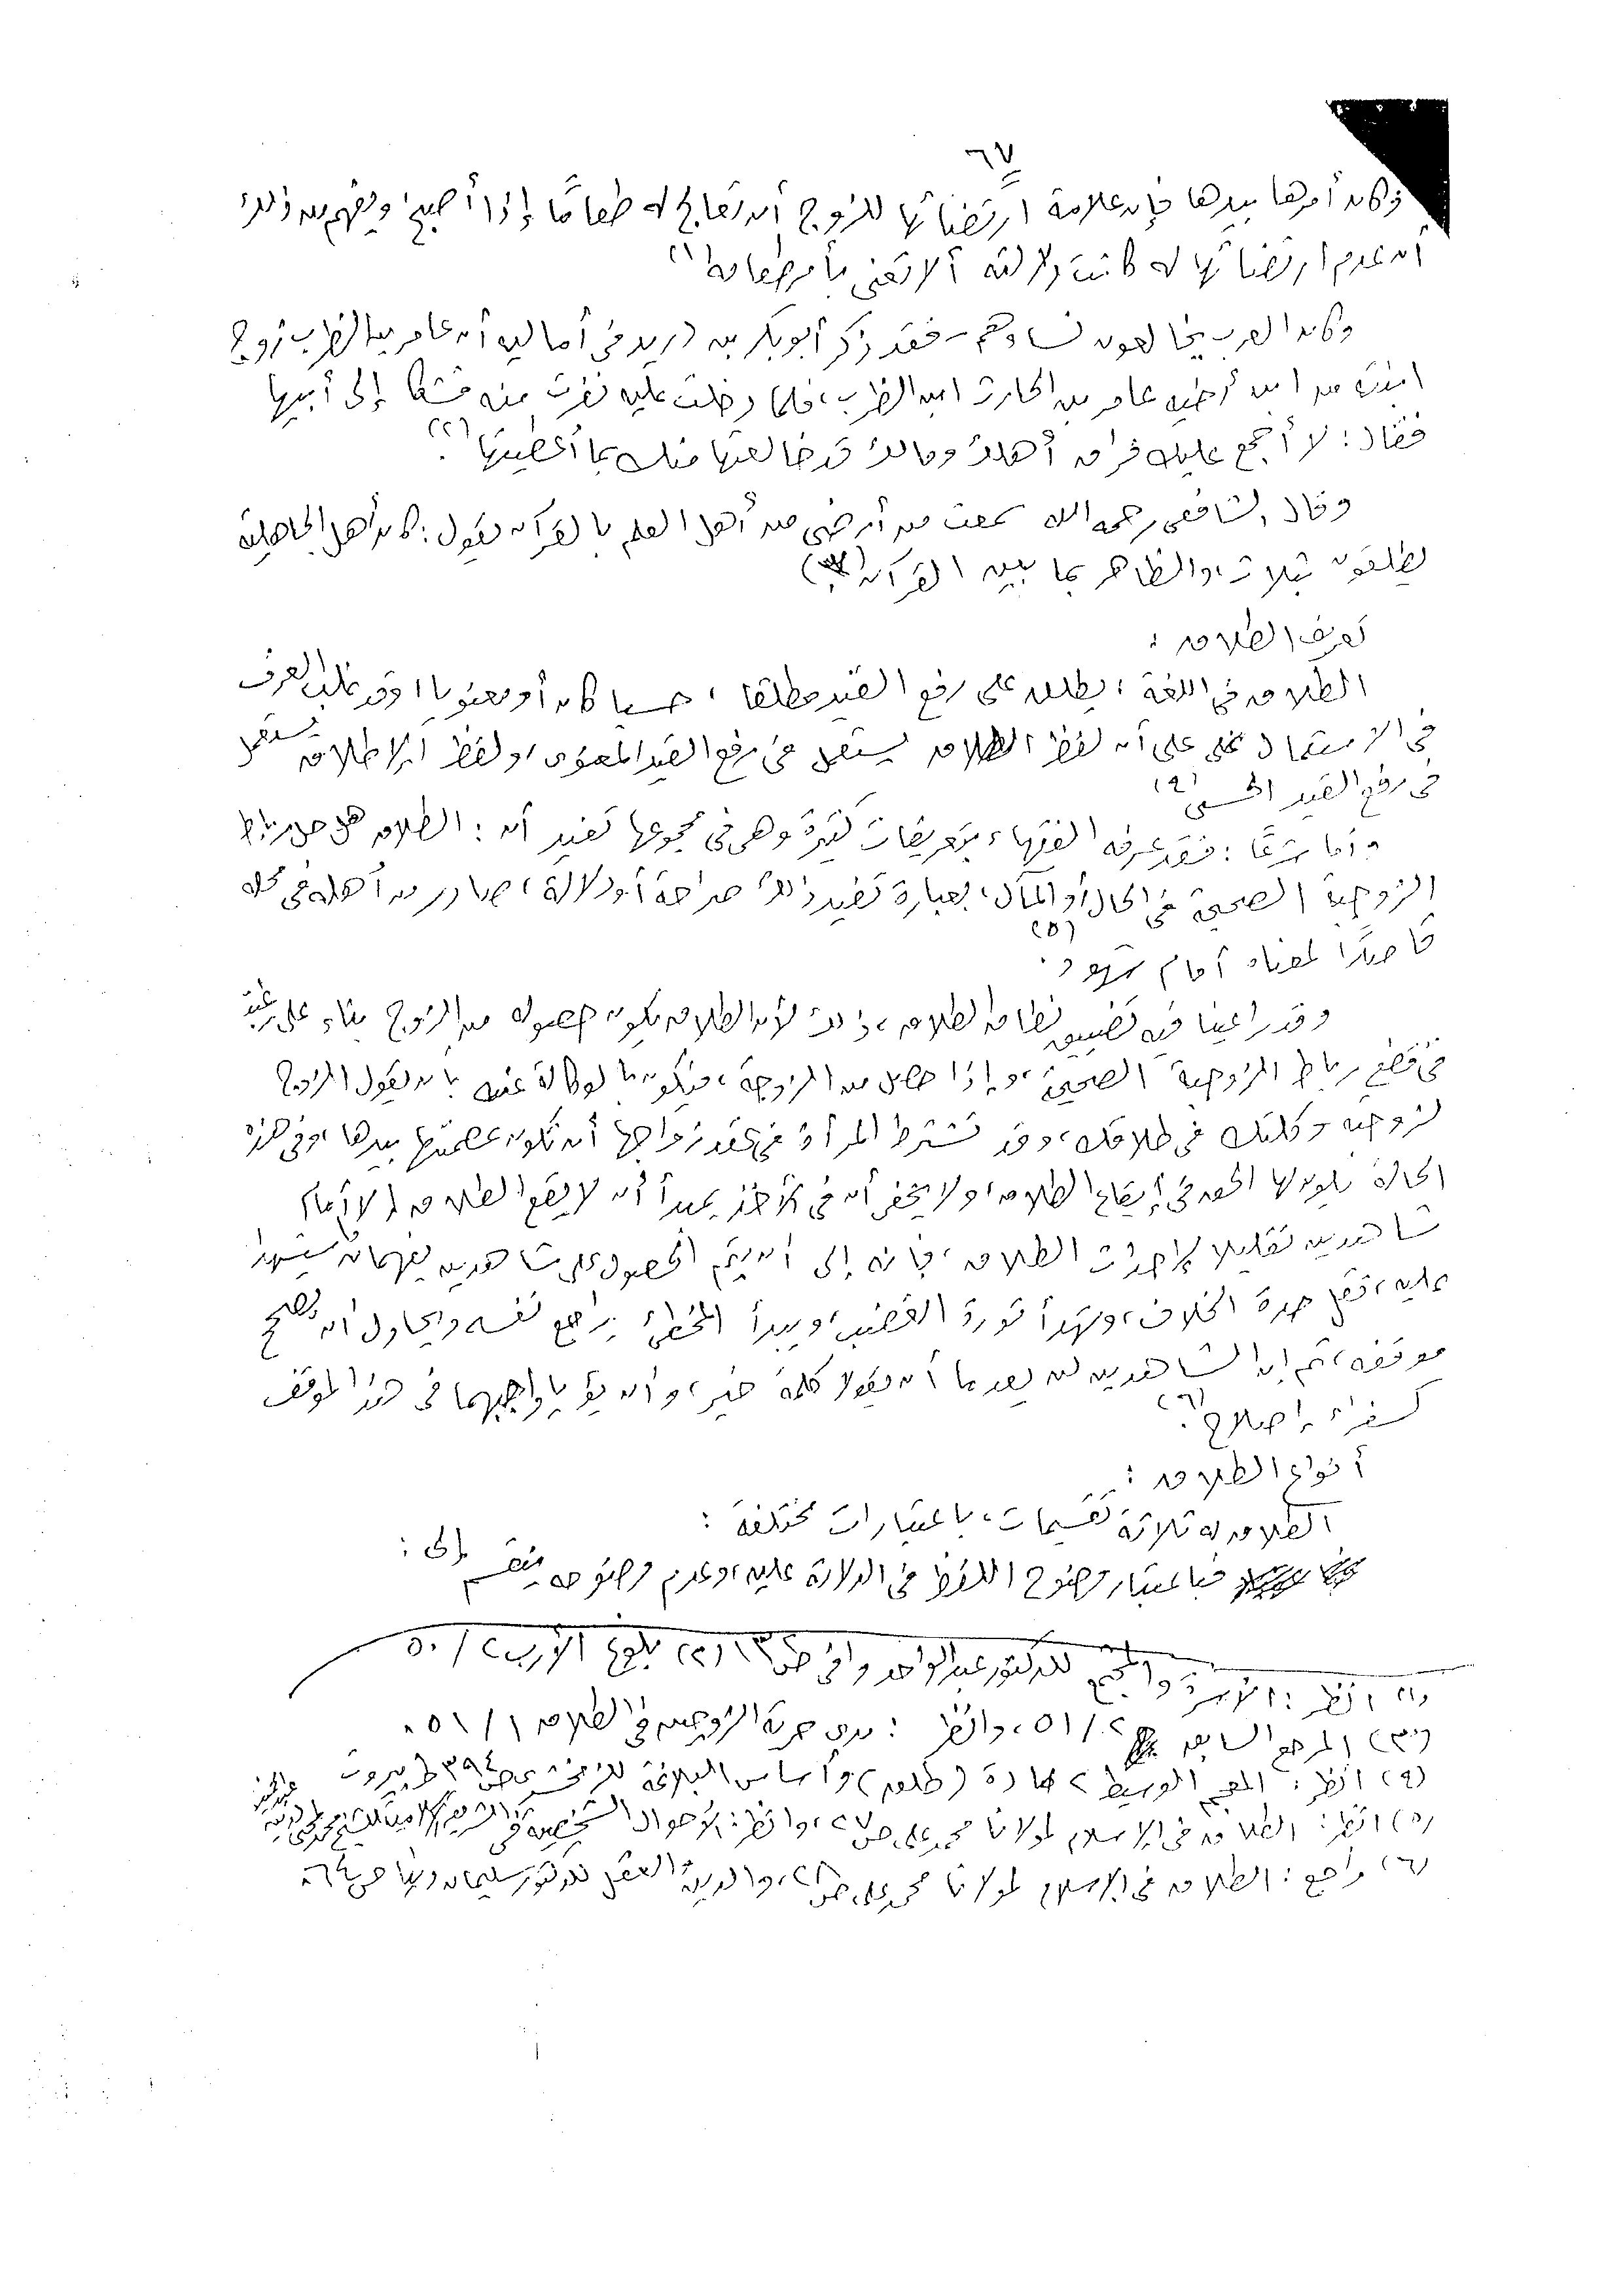 ٦٧
وكان أمرها بيدها فإن علامة ارتضائها للزوج أن تعالج له طعامًا إذا أصبح، ويفهم من ذلك
أن عدم ارتضائها له كانت دلالته ألا تعنى بأمر طعامه (١)
وكان العرب يخالعون نساءهم - فقد ذكر أبو بكر بن دريد في أماليه أن عامر بن الظرب زوج
ابنته من ابن أخيه عامر بن الحارث ابن الظرب، فلما دخلت عليه نفرت منه فشكا إلى أبيها
فقال: لا أجمع عليك فراق أهلك ومالك قد خالعتها منك بما أعطيتها (٢).
وقال الشافعي رحمه الله سمعت من أرضى من أهل العلم بالقرآن يقول: كان أهل الجاهلية
يطلقون بثلاث، والظاهر بما بين القرآن (٣)
تعريف الطلاق:
الطلاق في اللغة: يطلق على رفع القيد مطلقا، حسيا كان أو معنويا، وقد غلب العرف
في الاستعمال على أن لفظ الطلاق يستعمل في رفع القيد المعنوى، ولفظ الإطلاق يستعمل
في رفع القيد الحسى (٤)
وأما شرعًا: فقد عرفه الفقهاء بتعريفات كثيرة وهى في مجموعها تفيد أن: الطلاق هو حل رباط
الزوجية الصحيحة في الحال أو المآل، بعبارة تفيد ذلك صراحة أو دلالة، صادر من أهله في محله
قاصدًا لمعناه أمام شهود (٥).
وقد راعينا فيه تضييق نطاق الطلاق، ذلك لأن الطلاق يكون حصوله من الزوج بناء على رغبته
في قطع رباط الزوجية الصحيحة، وإذا حصل من الزوجة، فيكون بالوكالة عنه بأن يقول الزوج
لزوجته وكلتك في طلاقك، وقد تشترط المرأة في عقد زواجها أن تكون عصمتها بيدها، وفي هذه
الحالة يكون لها الحق في إيقاع الطلاق، ولا يخفى أن في الأخذ بمبدأ أن لا يقع الطلاق إلا أمام
شاهدين تقليلا لإحداث الطلاق، فإنه إلى أن يتم الحصول على شاهدين يشهدا
عليه، تقل حدة الخلاف، وتهدأ ثورة الغضب، ويبدأ المخطئ يراجع نفسه ويحاول أن يصحح
موقفه، ثم إن الشاهدين لن يعدما أن يقولا كلمة خير، وأن يؤديا واجبهما في هذا الموقف
كسفراء إصلاح (٦).
أنواع الطلاق:
الطلاق له ثلاثة تقسيمات، باعتبارات مختلفة:
فباعتبار وضوح اللفظ في الدلالة عليه، وعدم وضوحه ينقسم إلى:
(١) انظر: الأسرة والمجتمع للدكتور عبد الواحد وافى (٢) بلوغ الأرب ٢/٥٠
(٣) المرجع السابق ٢/٥١، وانظر: مدى حرية الزوجين في الطلاق ١/٥١.
(٤) انظر: المعجم الوسيط مادة (طلق) وأساس البلاغة للزمخشرى ص ٣٩٤ ط بيروت
(٥) انظر: الطلاق في الإسلام لمولانا محمد على ص ٢٧، وانظر: الأحوال الشخصية في الشريعة الإسلامية للشيخ محمد محى الدين عبد الحميد
(٦) راجع: الطلاق في الإسلام لمولانا محمد على ص ٢٨، والدين والعقل للدكتور سليمان دنيا